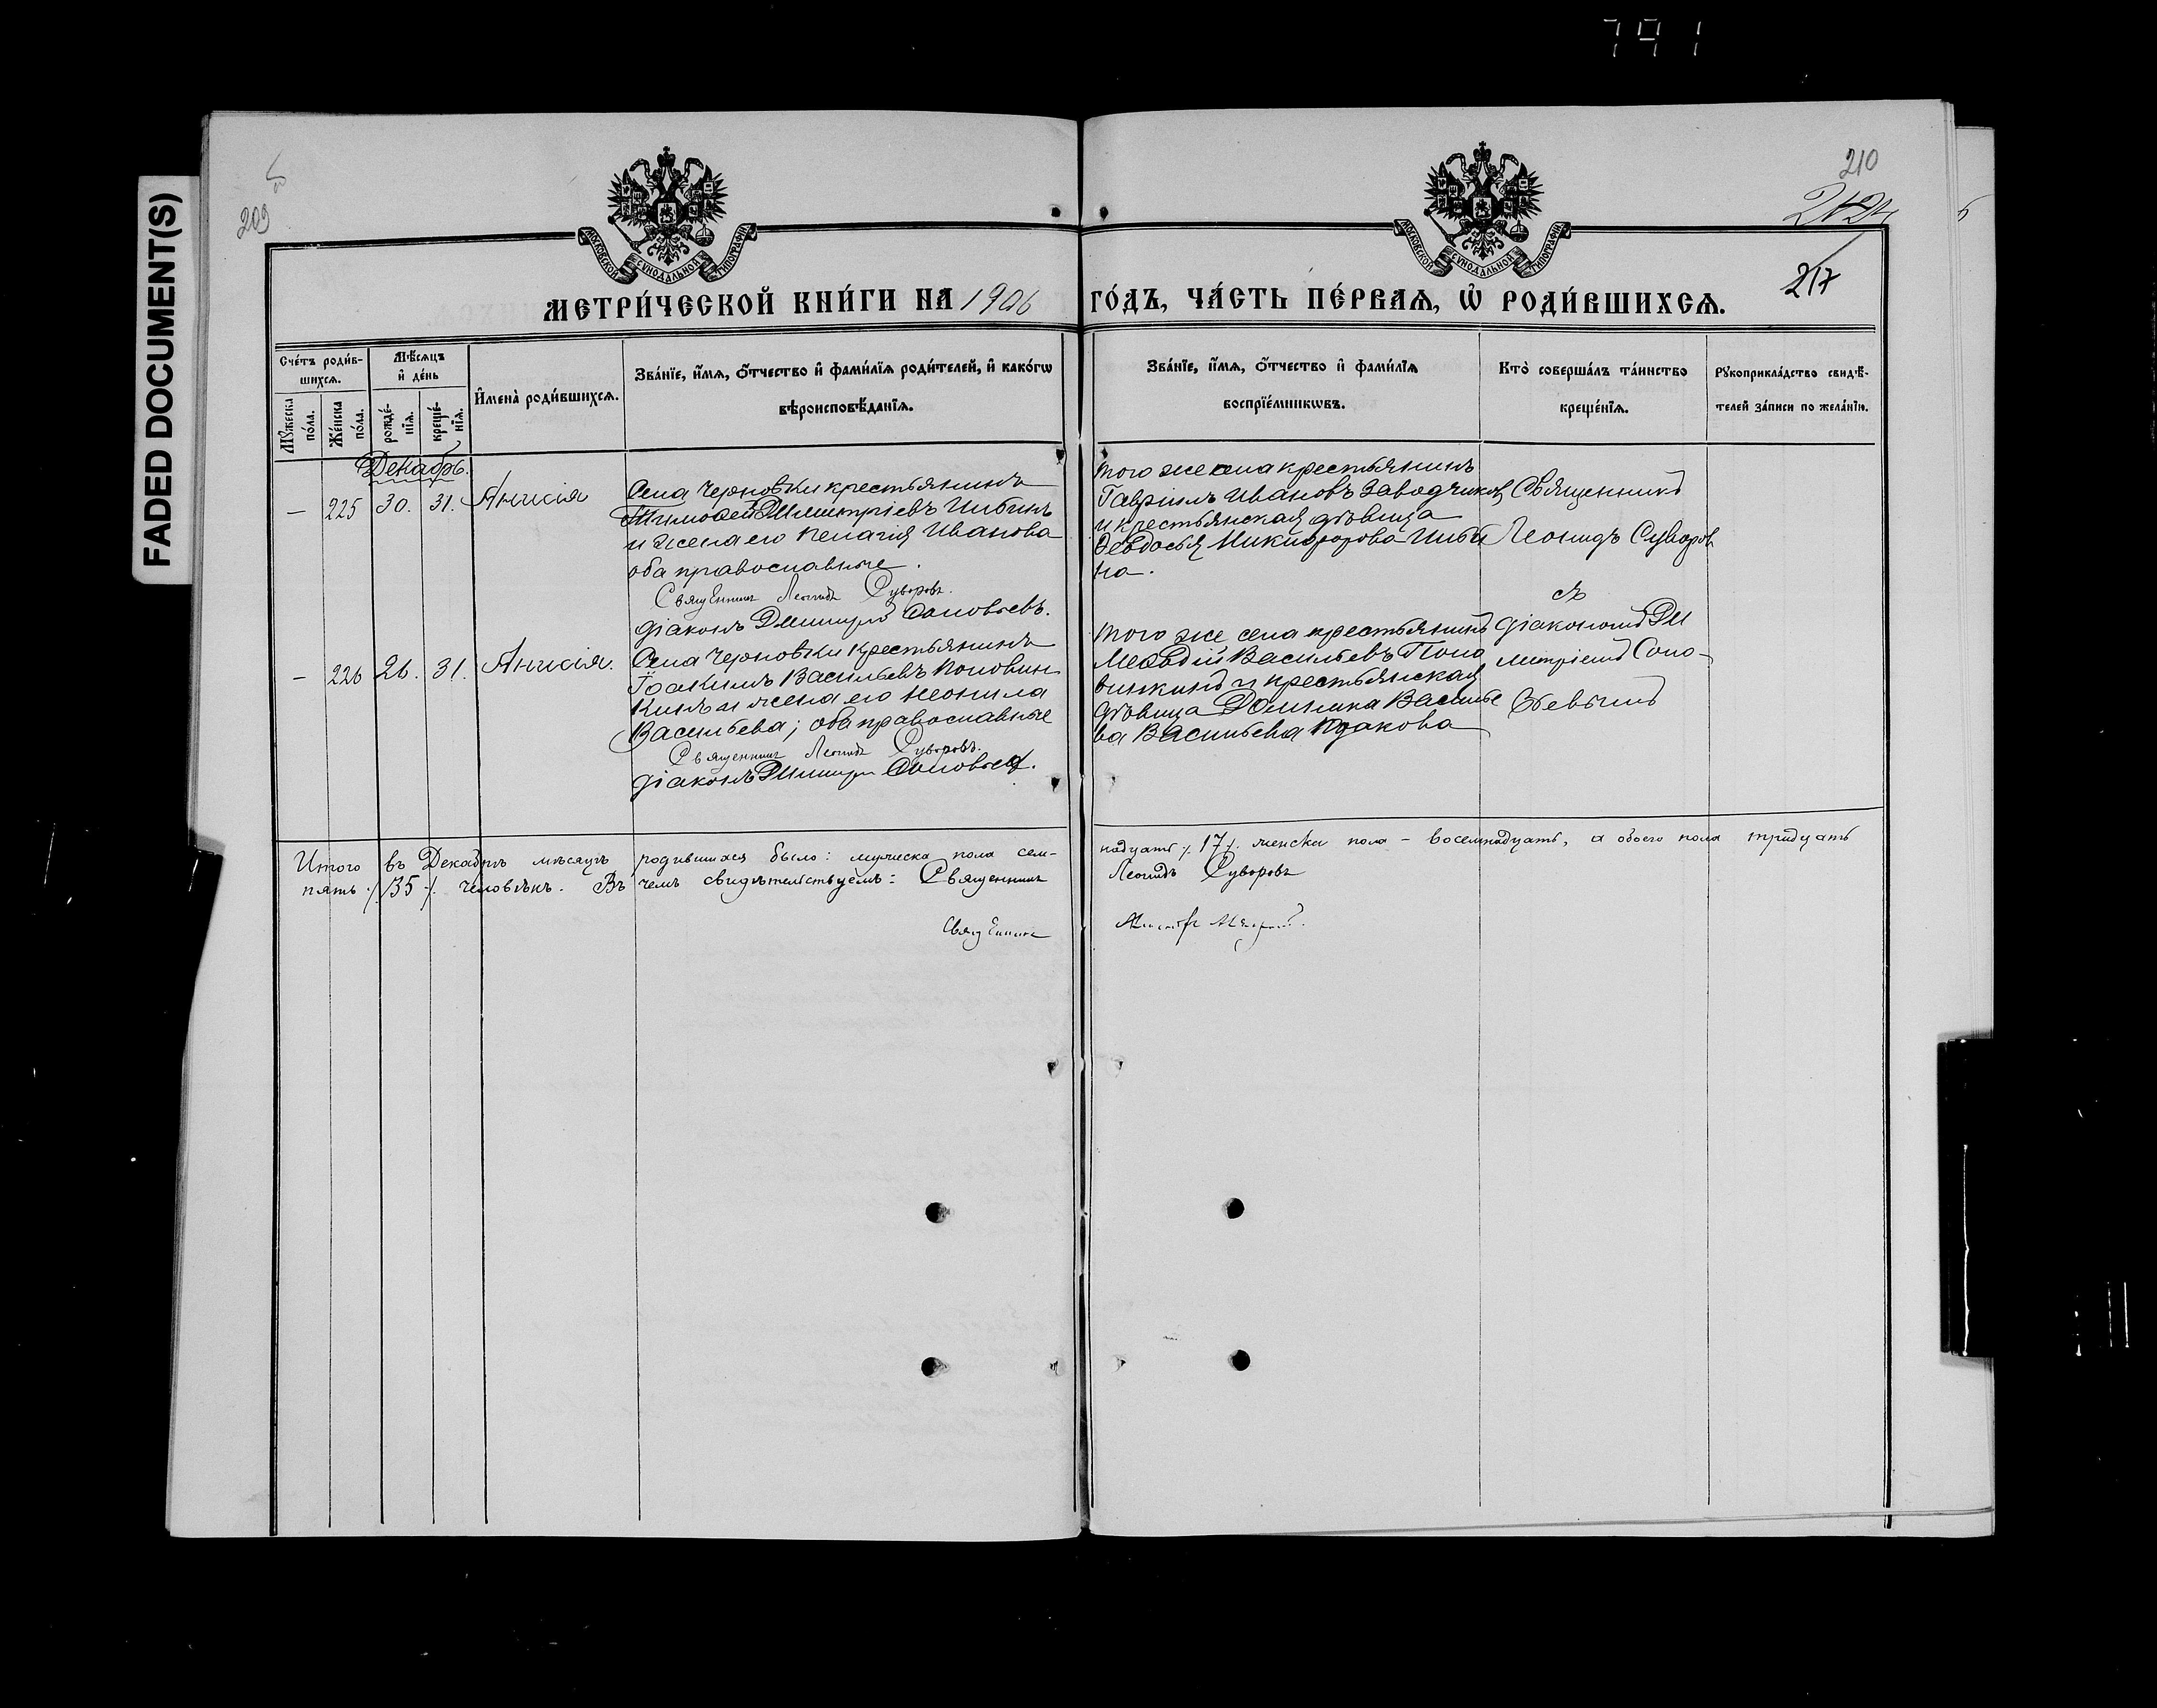 791
FADED DOCUMENT(S)
209
210
217
МОСКОВСКОЙ СѴНОДАЛЬНОЙ ТИПОГРАФІИ
МОСКОВСКОЙ СѴНОДАЛЬНОЙ ТИПОГРАФІИ
МЕТРИ́ЧЕСКОЙ КНИ́ГИ НА 1906 ГО́ДЪ, ЧА́СТЬ ПЕ́РВАѦ, Ѡ҆ РОДИ́ВШИХСѦ.
Сче́тъ роди́в-
шихсѧ.
Мꙋ́жеска по́ла.
Же́нска по́ла.
Мѣ́сѧцъ
и҆ де́нь
рожде́-
нїѧ.
креще́-
нїѧ.
И҆мена̀ роди́вшихсѧ.
Зва́нїе, и҆́мѧ, ѻ҆́тчество и҆ фами́лїѧ роди́телей, и҆ како́гѡ
вѣроисповѣ́данїѧ.
Зва́нїе, и҆́мѧ, ѻ҆́тчество и҆ фами́лїѧ
воспрїе́мникѡвъ.
Кто̀ соверша́лъ та́инство
креще́нїѧ.
Рꙋкоприкла́дство свидѣ́-
телей за́писи по жела́нїю.
Декабрь.
— 225 30. 31. Анисія
Села Черновки крестьянинъ
Тимофей Димитріевъ Цибинъ
и жена его Пелагія Иванова
оба православные.
Священникъ Леонидъ Суворовъ.
діаконъ Димитрій Соловьевъ.
того же села крестьянинъ
Гавріилъ Ивановъ Заводчиков
и крестьянская дѣвица
Ѳеодосья Никифорова Циби
на.
Священникъ
Леонидъ Суворов
съ
діакономъ Ди
митріемъ Соло-
вьевымъ
— 226 26. 31. Анисія.
Села Черновки крестьянинъ
Іоакимъ Васильевъ Половин
кинъ и жена его Неонила
Васильева; оба православные
Священникъ Леонидъ Суворовъ.
діаконъ Димитрій Соловьев.
того же села крестьянинъ
Меѳодій Васильевъ Поло
винкинъ и крестьянская
дѣвица Домника Василье
ва Васильева
Итого въ Декабрѣ мѣсяцѣ родившихся было: мужеска пола сем-
надцать /.17./ женска пола – восемнадцать, а обоего пола тридцать
пять ./.35./. человѣкъ. Въ чемъ свидѣтельствуемъ: Священникъ
Леонидъ Суворовъ
Священникъ